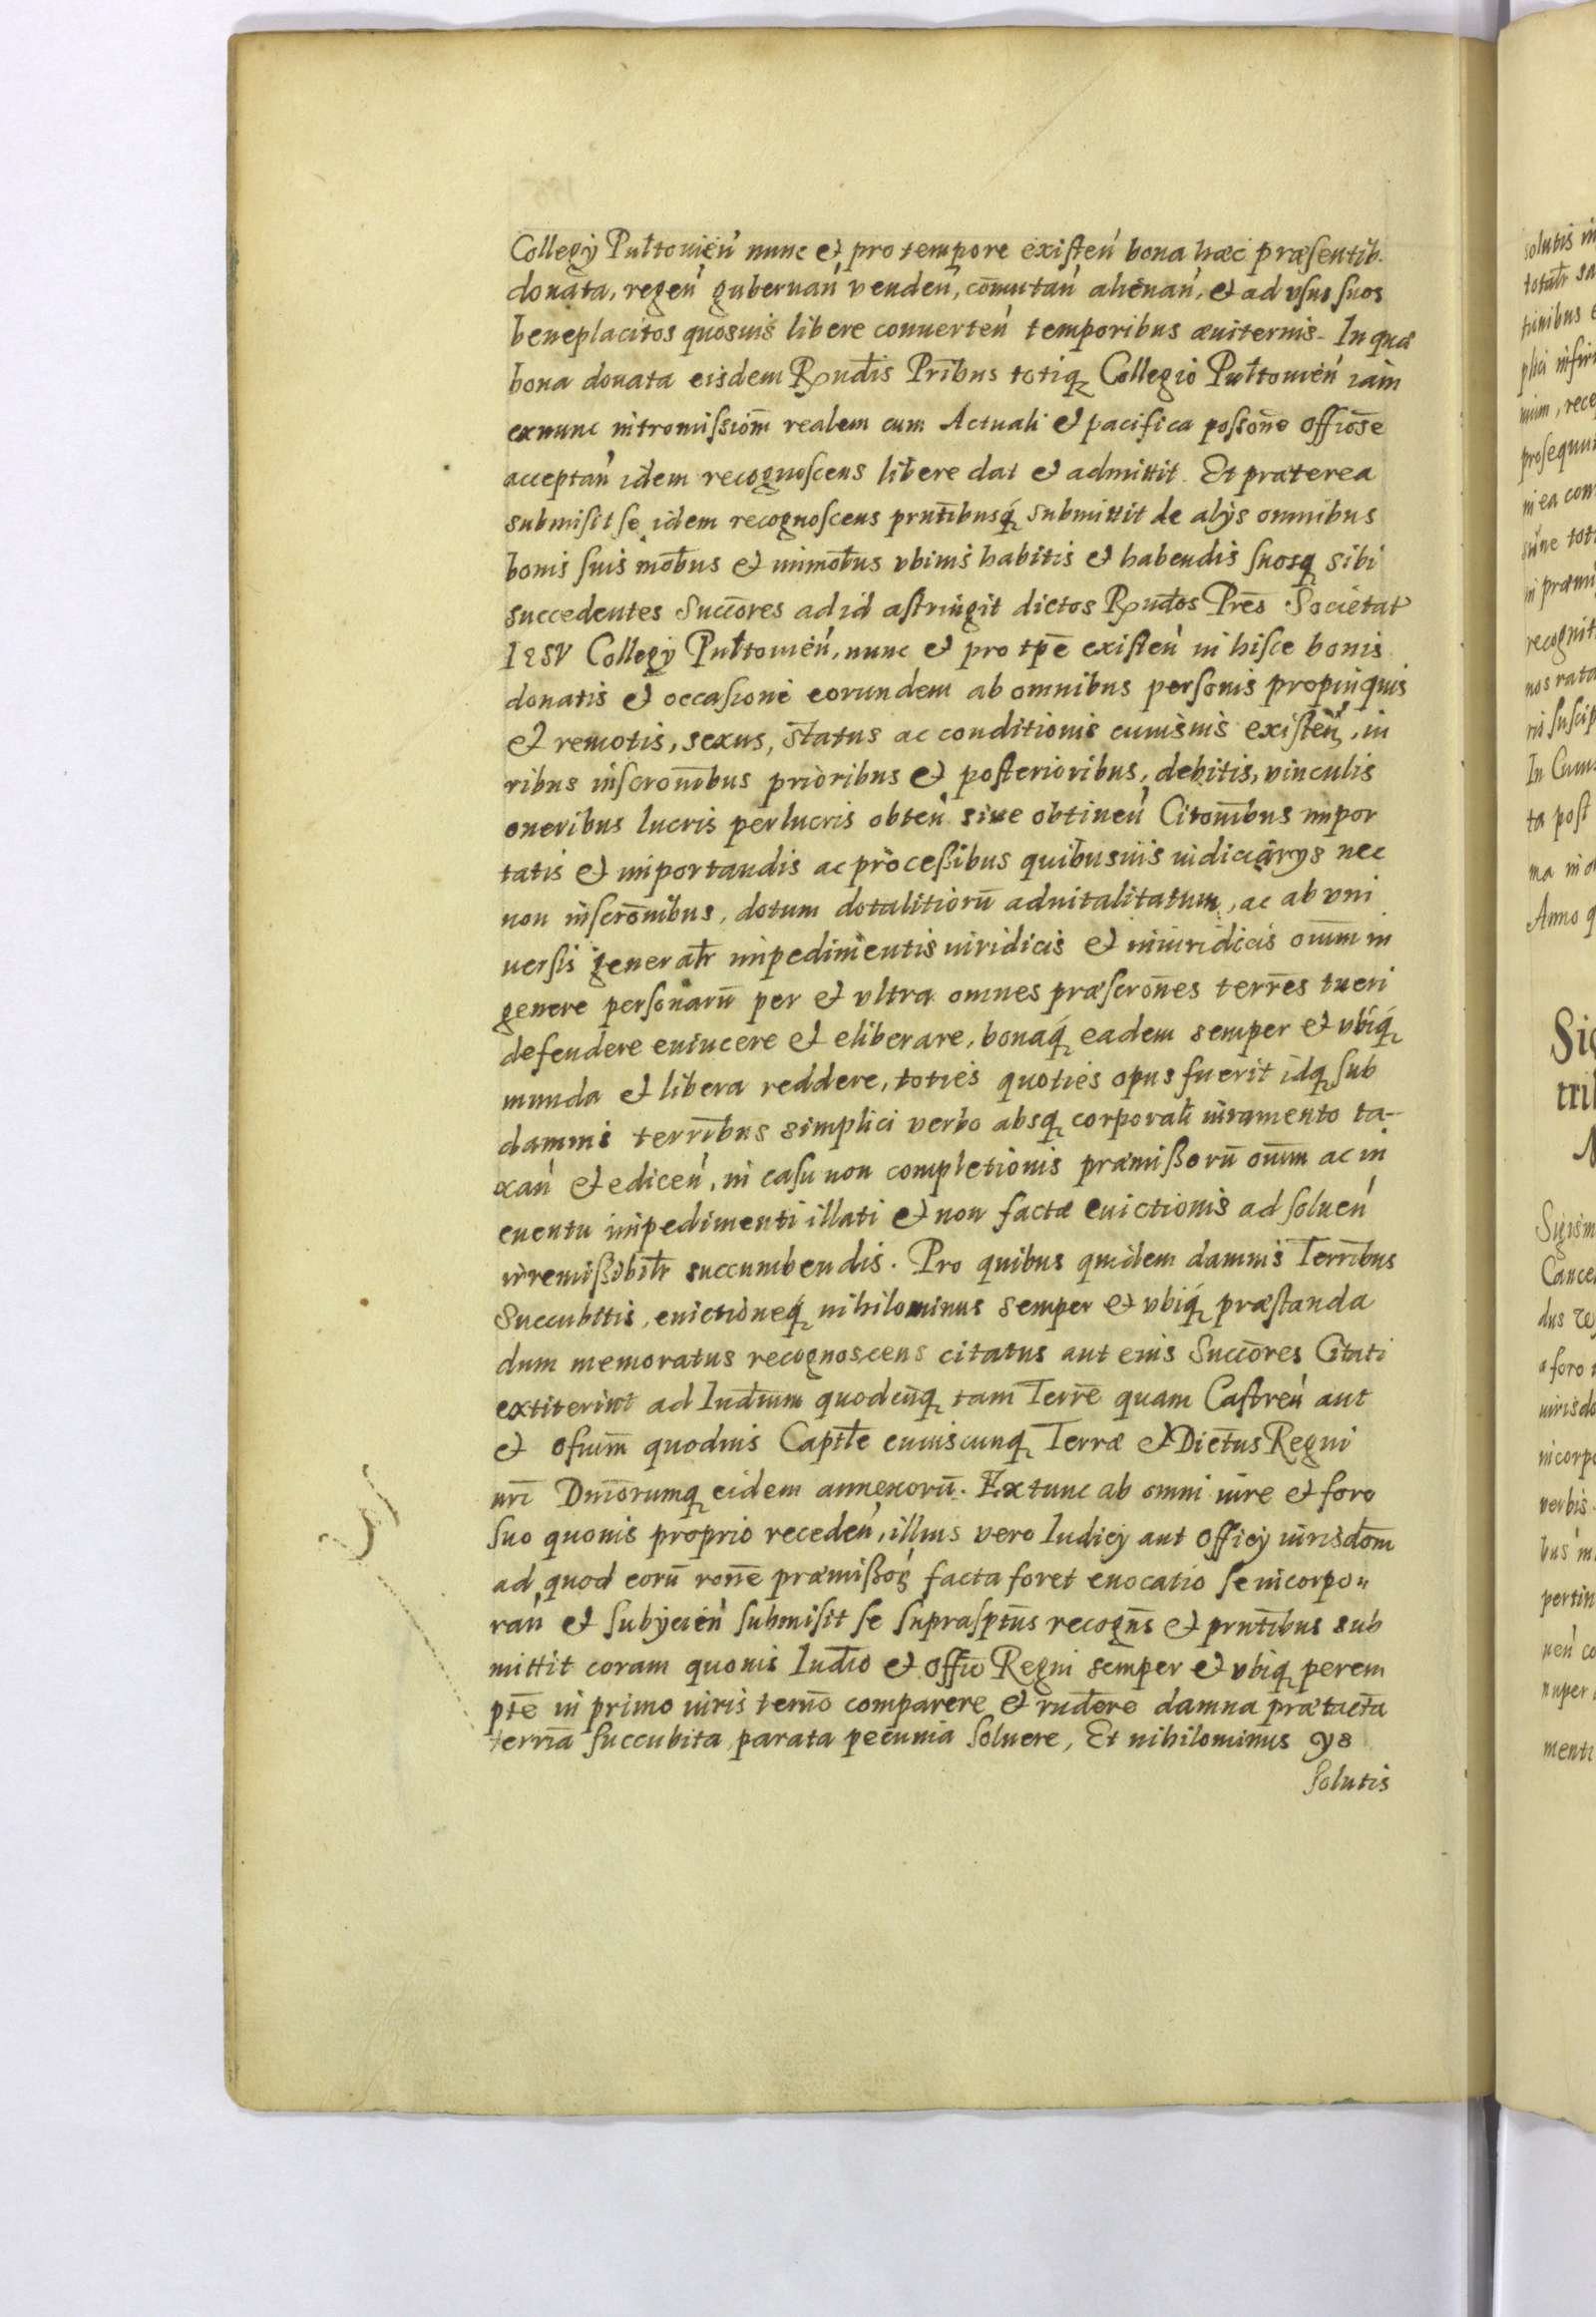 Collegÿ Pułtouień nunc et pro tempore existeń bona hæc præsentib.
donata, regeń gubernań vendeń, com̄utań alienań, et ad vsus suos
beneplacitos quosuis libere conuerteń temporibus æuiternis. In quæ
bona donata eisdem Rn̄dis Prībus totiq̨ Collegio Pułtouień iam
exnunc intromissiōm realem cum Actuali et pacifica possōne Offiōse
acceptań idem recognoscens libere dat et admittit. Et præterea
submisit se idem recognoscens prn̄tibusq̨ submittit de alÿs omnibus
bonis suis mōbus et immōbus vbiuis habitis et habendis suosq̨ sibi
succedentes Succōres ad id astringit dictos Rn̄dos Prēs Societat
IESV Collegÿ Pułtouień, nunc et pro tp̄e existeń in hisce bonis
donatis et occasione eorundem ab omnibus personis propinquis
et remotis, sexus, status ac conditionis cuiusuis existeń, iu
ribus inscronībus prioribus et posterioribus, debitis, vinculis
oneribus lucris perlucris obteń siue obtineń Citonībus impor
tatis et importandis ac processibus quibusuis iudiciarÿs nec
non inscrōnibus, dotum dotalitiorū aduitalitatum, ac ab vni
uersis generalr̄ impedimentis iuridicis et iniuridicis oīum in
genere personarū per et vltra omnes præscrōnes terrēs tueri
defendere euincere et eliberare, bonaq̨ eadem semper et vbiq̨
munda et libera reddere, toties quoties opus fuerit idq̨ sub
damnis terrībus simplici verbo absq̨ corporali iuramento ta-
xań et ediceń, in casu non completionis præmissorū oīum ac in
euentu impedimenti illati et non factæ euictionis ad solueń
irremissibilr̄ succumbendis. Pro quibus quidem damnis Terrībus
Succubitis, euictioneq̨ nihilominus semper et vbiq̨ præstanda
dum memoratus recognoscens citatus aut eius Succōres Citati
extiterint ad Iud̄ium quodcūq̨ tam Terrē quam Castreń aut
et ofīum quoduis Captle cuiuscunq̨ Terræ et Diētus Regni
nrī Dn̄iorumq̨ eidem annexorū. Extunc ab omni iure et foro
suo quouis proprio recedeń, illius vero Iudicÿ aut Officÿ iurisdōm
ad quod eorū ronē præmissoŕ facta foret euocatio se incorpo„
rań et subÿcień submisit se suprasptūs recogn̄s et prn̄tibus sub
mittit coram quouis Iud̄io et Offīo Regni semper et vbiq̨ perem
ptē in primo iuris termō comparere et rn̄dere damna prætacta
terrīa succubita parata pecunia soluere, Et nihilominus ÿs
solutis